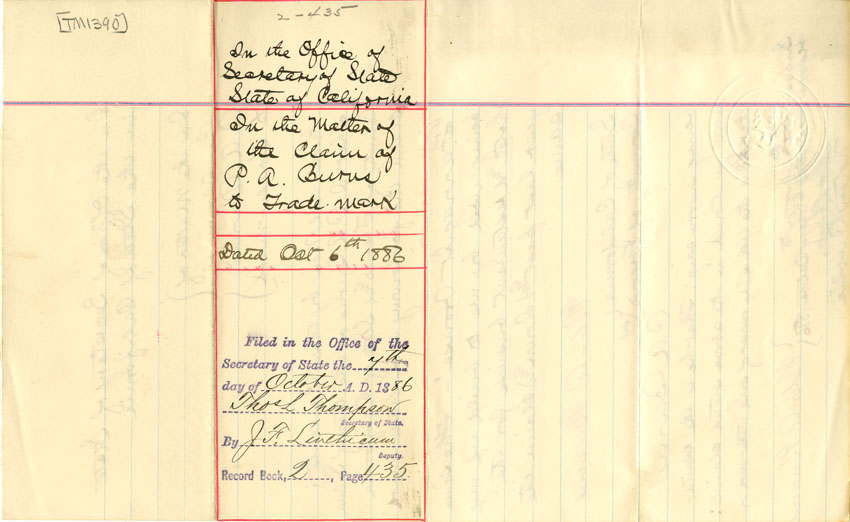 [TM1390]
2-435
In the Office of
Secretary of State
State of California
In the Matter of
the Claim of
P. A. Burns
to Trade-mark
Dated Oct 6th 1886
Filed in the Office of the
Secretary of State the 7th
day of October A. D. 1886
Thos L Thompson
Secretary of State.
By J. F. Linthicum
Deputy.
Record Book, 2, Page 435